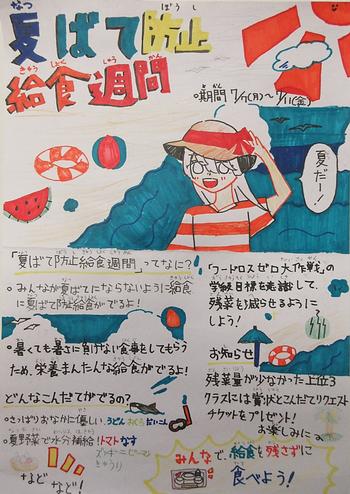 夏ばて防止
給食週間
○期間 7/7(月)～7/11(金)
夏だー!
「夏ばて防止給食週間」ってなに?
○みんなが夏ばてにならないように給食
に夏ばて防止給食がでるよ!
○暑くても暑さに負けない食事をしてもらう
ため、栄養まんたんな給食がでるよ!
どんなこんだてがでるの?
○さっぱりおなかに優しい うどん おくら だいこん
○夏野菜で水分補給! トマト なす
ズッキーニ ピーマン
きゅうり
など など!
「フードロスゼロ大作戦」の
学級目標を意識して、
残菜を減らせるように
しよう!
お知らせ
残菜量が少なかった上位3
クラスには賞状とこんだてリクエスト
チケットをプレゼント!
お楽しみに
みんなで、給食を残さずに
食べよう!